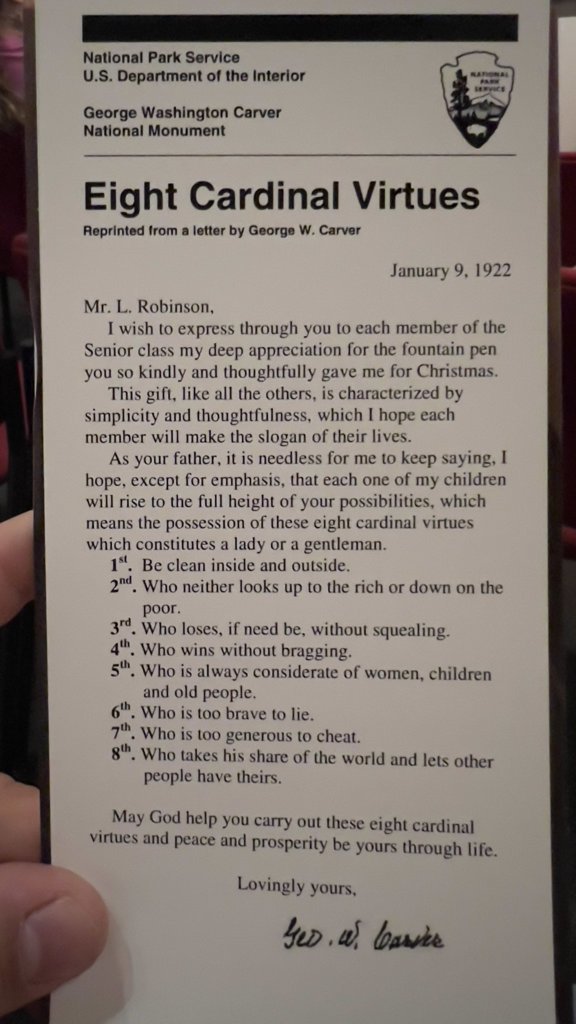 National Park Service
U.S. Department of the Interior
NATIONAL
PARK
SERVICE
George Washington Carver
National Monument
Eight Cardinal Virtues
Reprinted from a letter by George W. Carver
January 9, 1922
Mr. L. Robinson,
I wish to express through you to each member of the
Senior class my deep appreciation for the fountain pen
you so kindly and thoughtfully gave me for Christmas.
This gift, like all the others, is characterized by
simplicity and thoughtfulness, which I hope each
member will make the slogan of their lives.
As your father, it is needless for me to keep saying, I
hope, except for emphasis, that each one of my children
will rise to the full height of your possibilities, which
means the possession of these eight cardinal virtues
which constitutes a lady or a gentleman.
1st. Be clean inside and outside.
2nd. Who neither looks up to the rich or down on the
poor.
3rd. Who loses, if need be, without squealing.
4th. Who wins without bragging.
5th. Who is always considerate of women, children
and old people.
6th. Who is too brave to lie.
7th. Who is too generous to cheat.
8th. Who takes his share of the world and lets other
people have theirs.
May God help you carry out these eight cardinal
virtues and peace and prosperity be yours through life.
Lovingly yours,
Geo. W. Carver